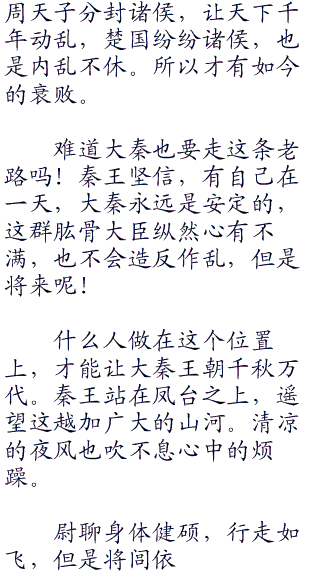 周天子分封诸侯，让天下千
年动乱，楚国纷纷诸侯，也
是内乱不休。所以才有如今
的衰败。
难道大秦也要走这条老
路吗！秦王坚信，有自己在
一天，大秦永远是安定的，
这群肱骨大臣纵然心有不
满，也不会造反作乱，但是
将来呢！
什么人做在这个位置
上，才能让大秦王朝千秋万
代。秦王站在凤台之上，遥
望这越加广大的山河。清凉
的夜风也吹不息心中的烦
躁。
尉聊身体健硕，行走如
飞，但是将闾依